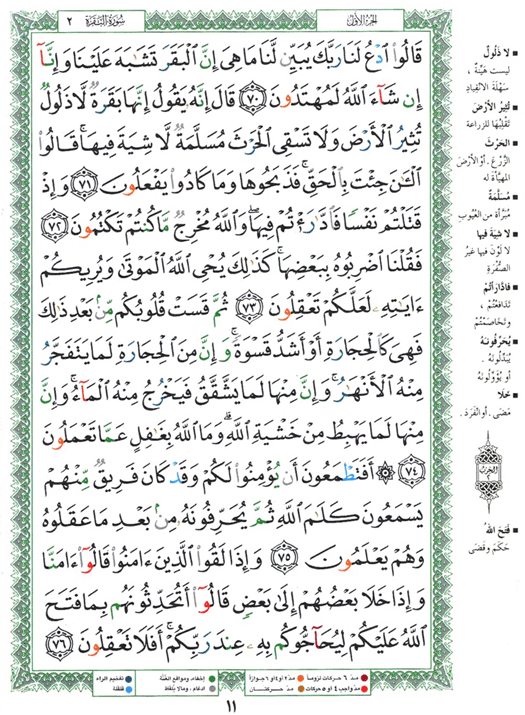 الجزء الأول
سورة البقرة ٢
قَالُوا۟ ٱدْعُ لَنَا رَبَّكَ يُبَيِّن لَّنَا مَا هِىَ إِنَّ ٱلْبَقَرَ تَشَٰبَهَ عَلَيْنَا وَإِنَّآ
إِن شَآءَ ٱللَّهُ لَمُهْتَدُونَ ٧٠ قَالَ إِنَّهُۥ يَقُولُ إِنَّهَا بَقَرَةٌ لَّا ذَلُولٌ
تُثِيرُ ٱلْأَرْضَ وَلَا تَسْقِى ٱلْحَرْثَ مُسَلَّمَةٌ لَّا شِيَةَ فِيهَا ۚ قَالُوا۟
ٱلْـَٰٔنَ جِئْتَ بِٱلْحَقِّ ۚ فَذَبَحُوهَا وَمَا كَادُوا۟ يَفْعَلُونَ ٧١ وَإِذْ
قَتَلْتُمْ نَفْسًا فَٱدَّٰرَْٰٔتُمْ فِيهَا ۖ وَٱللَّهُ مُخْرِجٌ مَّا كُنتُمْ تَكْتُمُونَ ٧٢
فَقُلْنَا ٱضْرِبُوهُ بِبَعْضِهَا ۚ كَذَٰلِكَ يُحْىِ ٱللَّهُ ٱلْمَوْتَىٰ وَيُرِيكُمْ
ءَايَٰتِهِۦ لَعَلَّكُمْ تَعْقِلُونَ ٧٣ ثُمَّ قَسَتْ قُلُوبُكُم مِّنۢ بَعْدِ ذَٰلِكَ
فَهِىَ كَٱلْحِجَارَةِ أَوْ أَشَدُّ قَسْوَةً ۚ وَإِنَّ مِنَ ٱلْحِجَارَةِ لَمَا يَتَفَجَّرُ
مِنْهُ ٱلْأَنْهَٰرُ ۚ وَإِنَّ مِنْهَا لَمَا يَشَّقَّقُ فَيَخْرُجُ مِنْهُ ٱلْمَآءُ ۚ وَإِنَّ
مِنْهَا لَمَا يَهْبِطُ مِنْ خَشْيَةِ ٱللَّهِ ۗ وَمَا ٱللَّهُ بِغَٰفِلٍ عَمَّا تَعْمَلُونَ
٧٤ ۞ أَفَتَطْمَعُونَ أَن يُؤْمِنُوا۟ لَكُمْ وَقَدْ كَانَ فَرِيقٌ مِّنْهُمْ
يَسْمَعُونَ كَلَٰمَ ٱللَّهِ ثُمَّ يُحَرِّفُونَهُۥ مِنۢ بَعْدِ مَا عَقَلُوهُ
وَهُمْ يَعْلَمُونَ ٧٥ وَإِذَا لَقُوا۟ ٱلَّذِينَ ءَامَنُوا۟ قَالُوٓا۟ ءَامَنَّا
وَإِذَا خَلَا بَعْضُهُمْ إِلَىٰ بَعْضٍ قَالُوٓا۟ أَتُحَدِّثُونَهُم بِمَا فَتَحَ
ٱللَّهُ عَلَيْكُمْ لِيُحَآجُّوكُم بِهِۦ عِندَ رَبِّكُمْ ۚ أَفَلَا تَعْقِلُونَ ٧٦
لا ذَلُولٌ
ليست هَيِّنَةً ،
سَهْلَةَ الانقِيادِ
تُثيرُ الأرْضَ
تَقْلِبُهَا للزراعة
الحَرْثَ
الزَّرْعَ ، أو الأرْضَ
المهيَّأة له
مُسَلَّمَةٌ
مُبَرَّأة من العُيوبِ
لا شِيَةَ فيها
لا لَوْنَ فيها غيرُ
الصُّفْرَة
فادَّارَأتُمْ
تَدافَعْتُمْ ،
وتخاصَمْتُمْ
يُحَرِّفونَه
يُبَدِّلُونَه ،
أو يُؤَوِّلُونَه
خَلَا
مَضَى . أو انْفَرَدَ .
الحزب
٢
فَتَحَ اللهُ
حَكَمَ وقَضَى
مدّ ٦ حركات لزوماً
مدّ ٢ أو ٤ أو ٦ جوازاً
إخفاء، ومواقع الغُنَّة
تفخيم الراء
مدّ واجب ٤ أو ٥ حركات
مدّ حركتان
ادغام ، وما لا يُلفَظ
قلقلة
١١